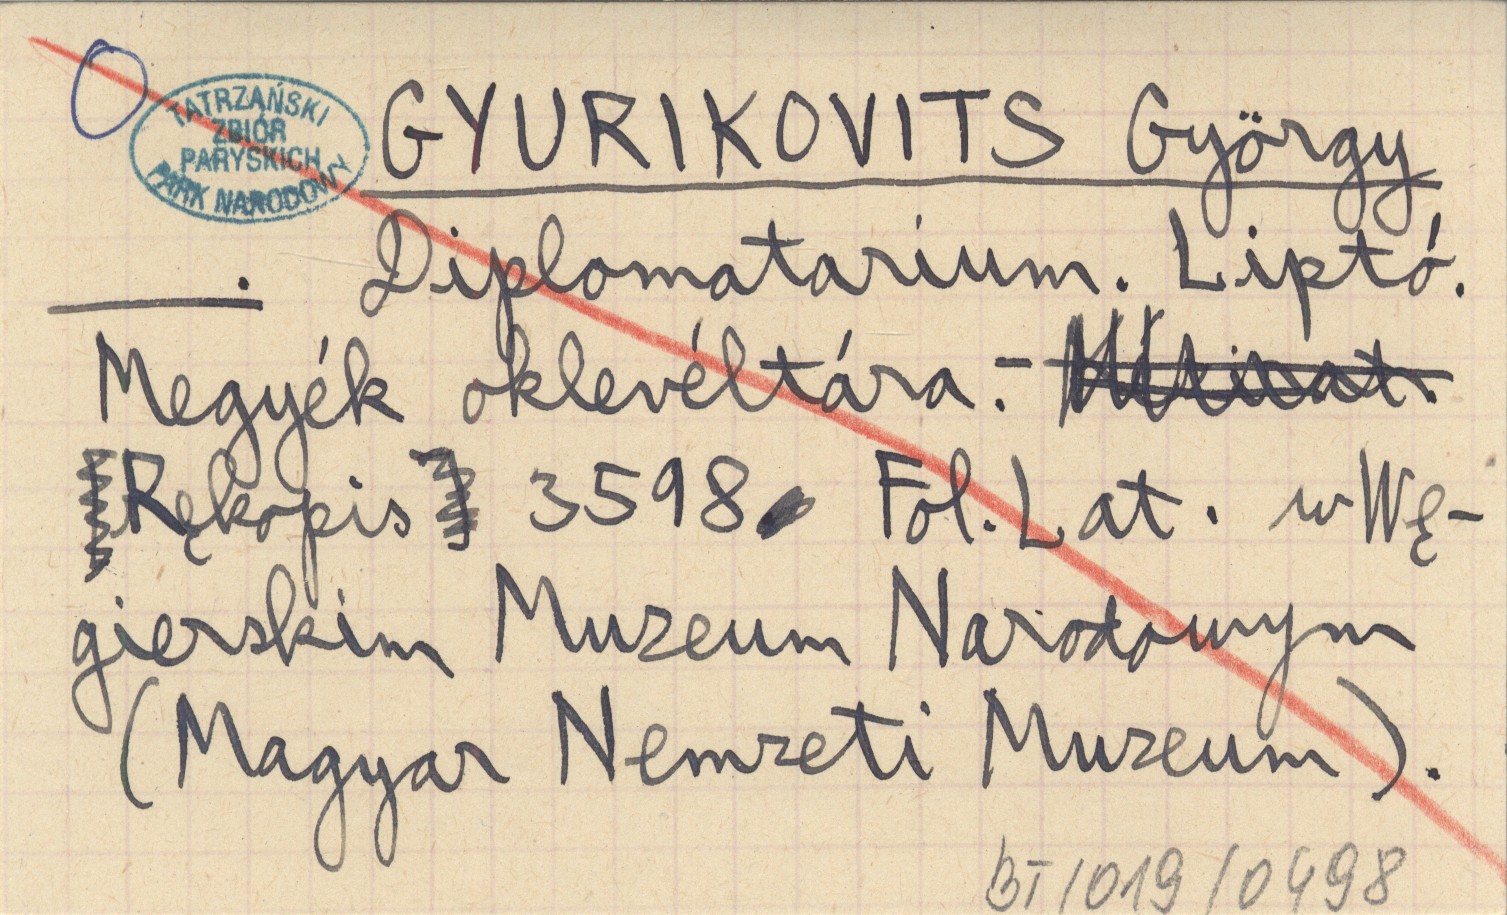 TATRZAŃSKI
ZBIÓR
PARYSKICH
PARK NARODOWY
GYURIKOVITS György
. Diplomatarium. Liptó.
Megyék oklevéltára. -
[Rękopis] 3598 Fol. Lat. w Wę-
gierskim Muzeum Narodowym
(Magyar Nemzeti Muzeum).
BT/019/0498